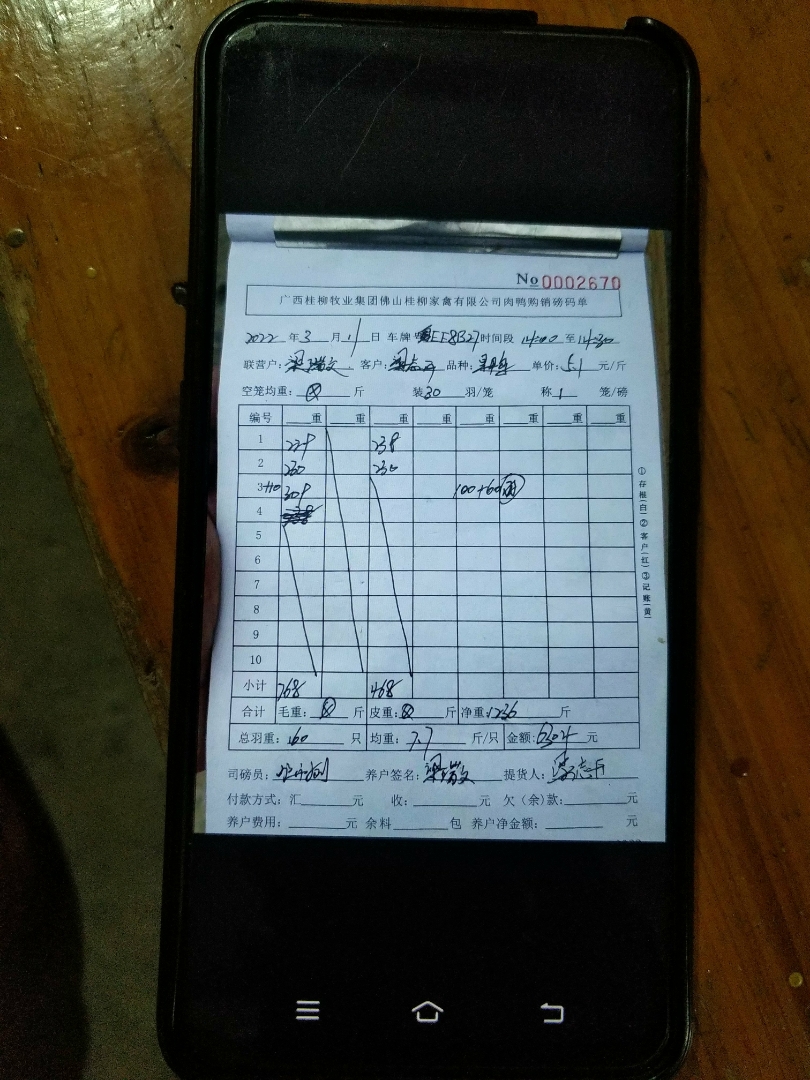 No 0002670
广西桂柳牧业集团佛山桂柳家禽有限公司肉鸭购销磅码单
2022 年 3 月 11 日 车牌 EF8B27 时间段 14:00 至 14:30
联营户: 梁瑞文 客户: 梁志 品种: 单价: 5.1 元/斤
空笼均重: ⊗ 斤 装 30 羽/笼 称 1 笼/磅
编号 重 重 重 重 重 重 重 重
1 229 238
2 230 230
3 +10 309 100+60
4
5
6
7
8
9
10
小计 768 468
合计 毛重: ⊗ 斤 皮重: ⊗ 斤 净重: 1236 斤
总羽重: 160 只 均重: 7.7 斤/只 金额: 6304 元
司磅员: 养户签名: 梁瑞文 提货人: 梁志
付款方式: 汇 元 收: 元 欠(余)款: 元
养户费用: 元 余料 包 养户净金额: 元
①存根(白)②客户(红)③记账(黄)